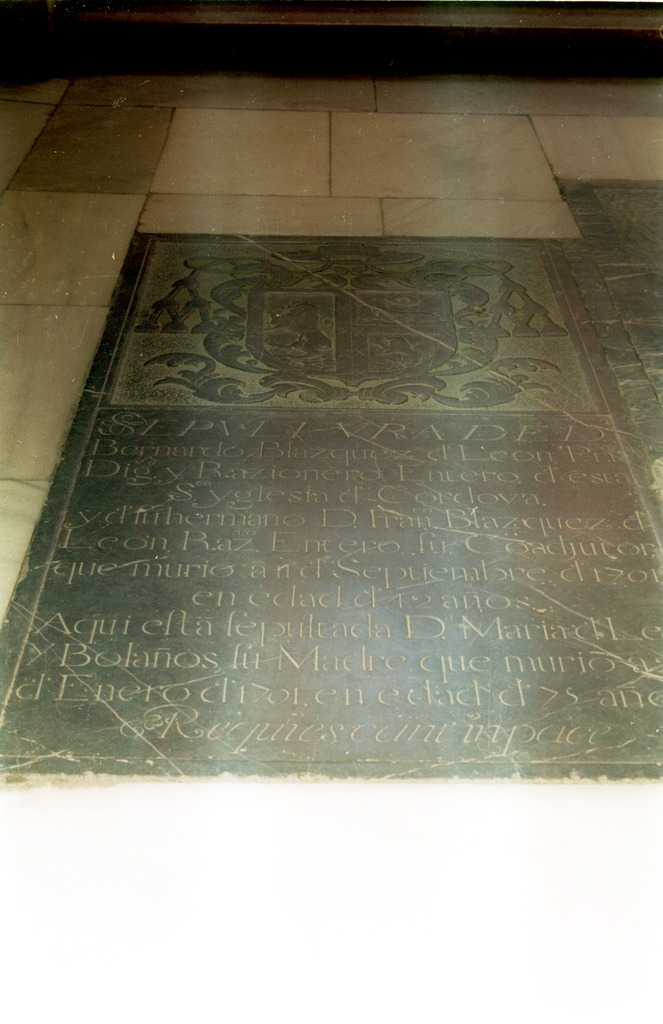 SEPVLTVRA DE D.
Bernardo, Blazquez, d Leon Pri
Dig. y Razionero, Entero, d esta
S. yglesia d Cordova.
y d su hermano D. Fran. Blazquez, d
Leon, Raz. Entero, su Coadjutor,
que murio a 11 d Septiembre, d 1701
en edad d 42 años.
Aqui està sepultada D. Maria d Le
y Bolaños, su Madre que murio a
d Enero d 1701, en edad, d 75 año
Requiescant in pace,